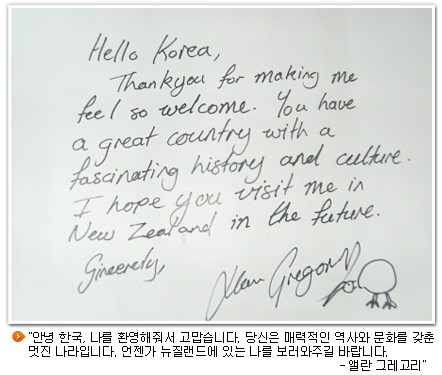 Hello Korea,
Thankyou for making me
feel so welcome. You have
a great country with a
fascinating history and culture.
I hope you visit me in
New Zealand in the future.
Sincerely,
Alan Gregory
"안녕 한국, 나를 환영해줘서 고맙습니다. 당신은 매력적인 역사와 문화를 갖춘
멋진 나라입니다. 언젠가 뉴질랜드에 있는 나를 보러와주길 바랍니다.
- 앨란 그레고리"